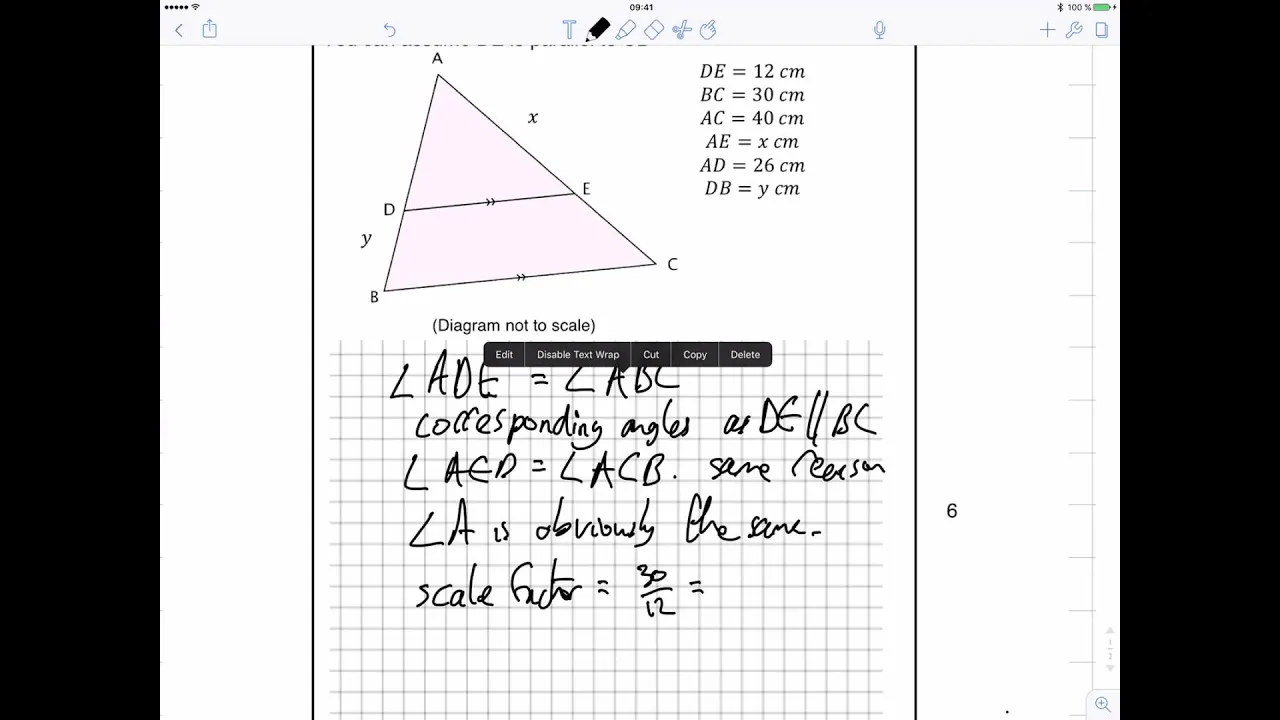 09:41
100 %
A
x
E
D
y
C
B
DE = 12 cm
BC = 30 cm
AC = 40 cm
AE = x cm
AD = 26 cm
DB = y cm
(Diagram not to scale)
Edit Disable Text Wrap Cut Copy Delete
∠ADE = ∠ABC
corresponding angles as DE // BC
∠AED = ∠ACB. same reason
∠A is obviously the same.
6
scale factor = 30/12 =